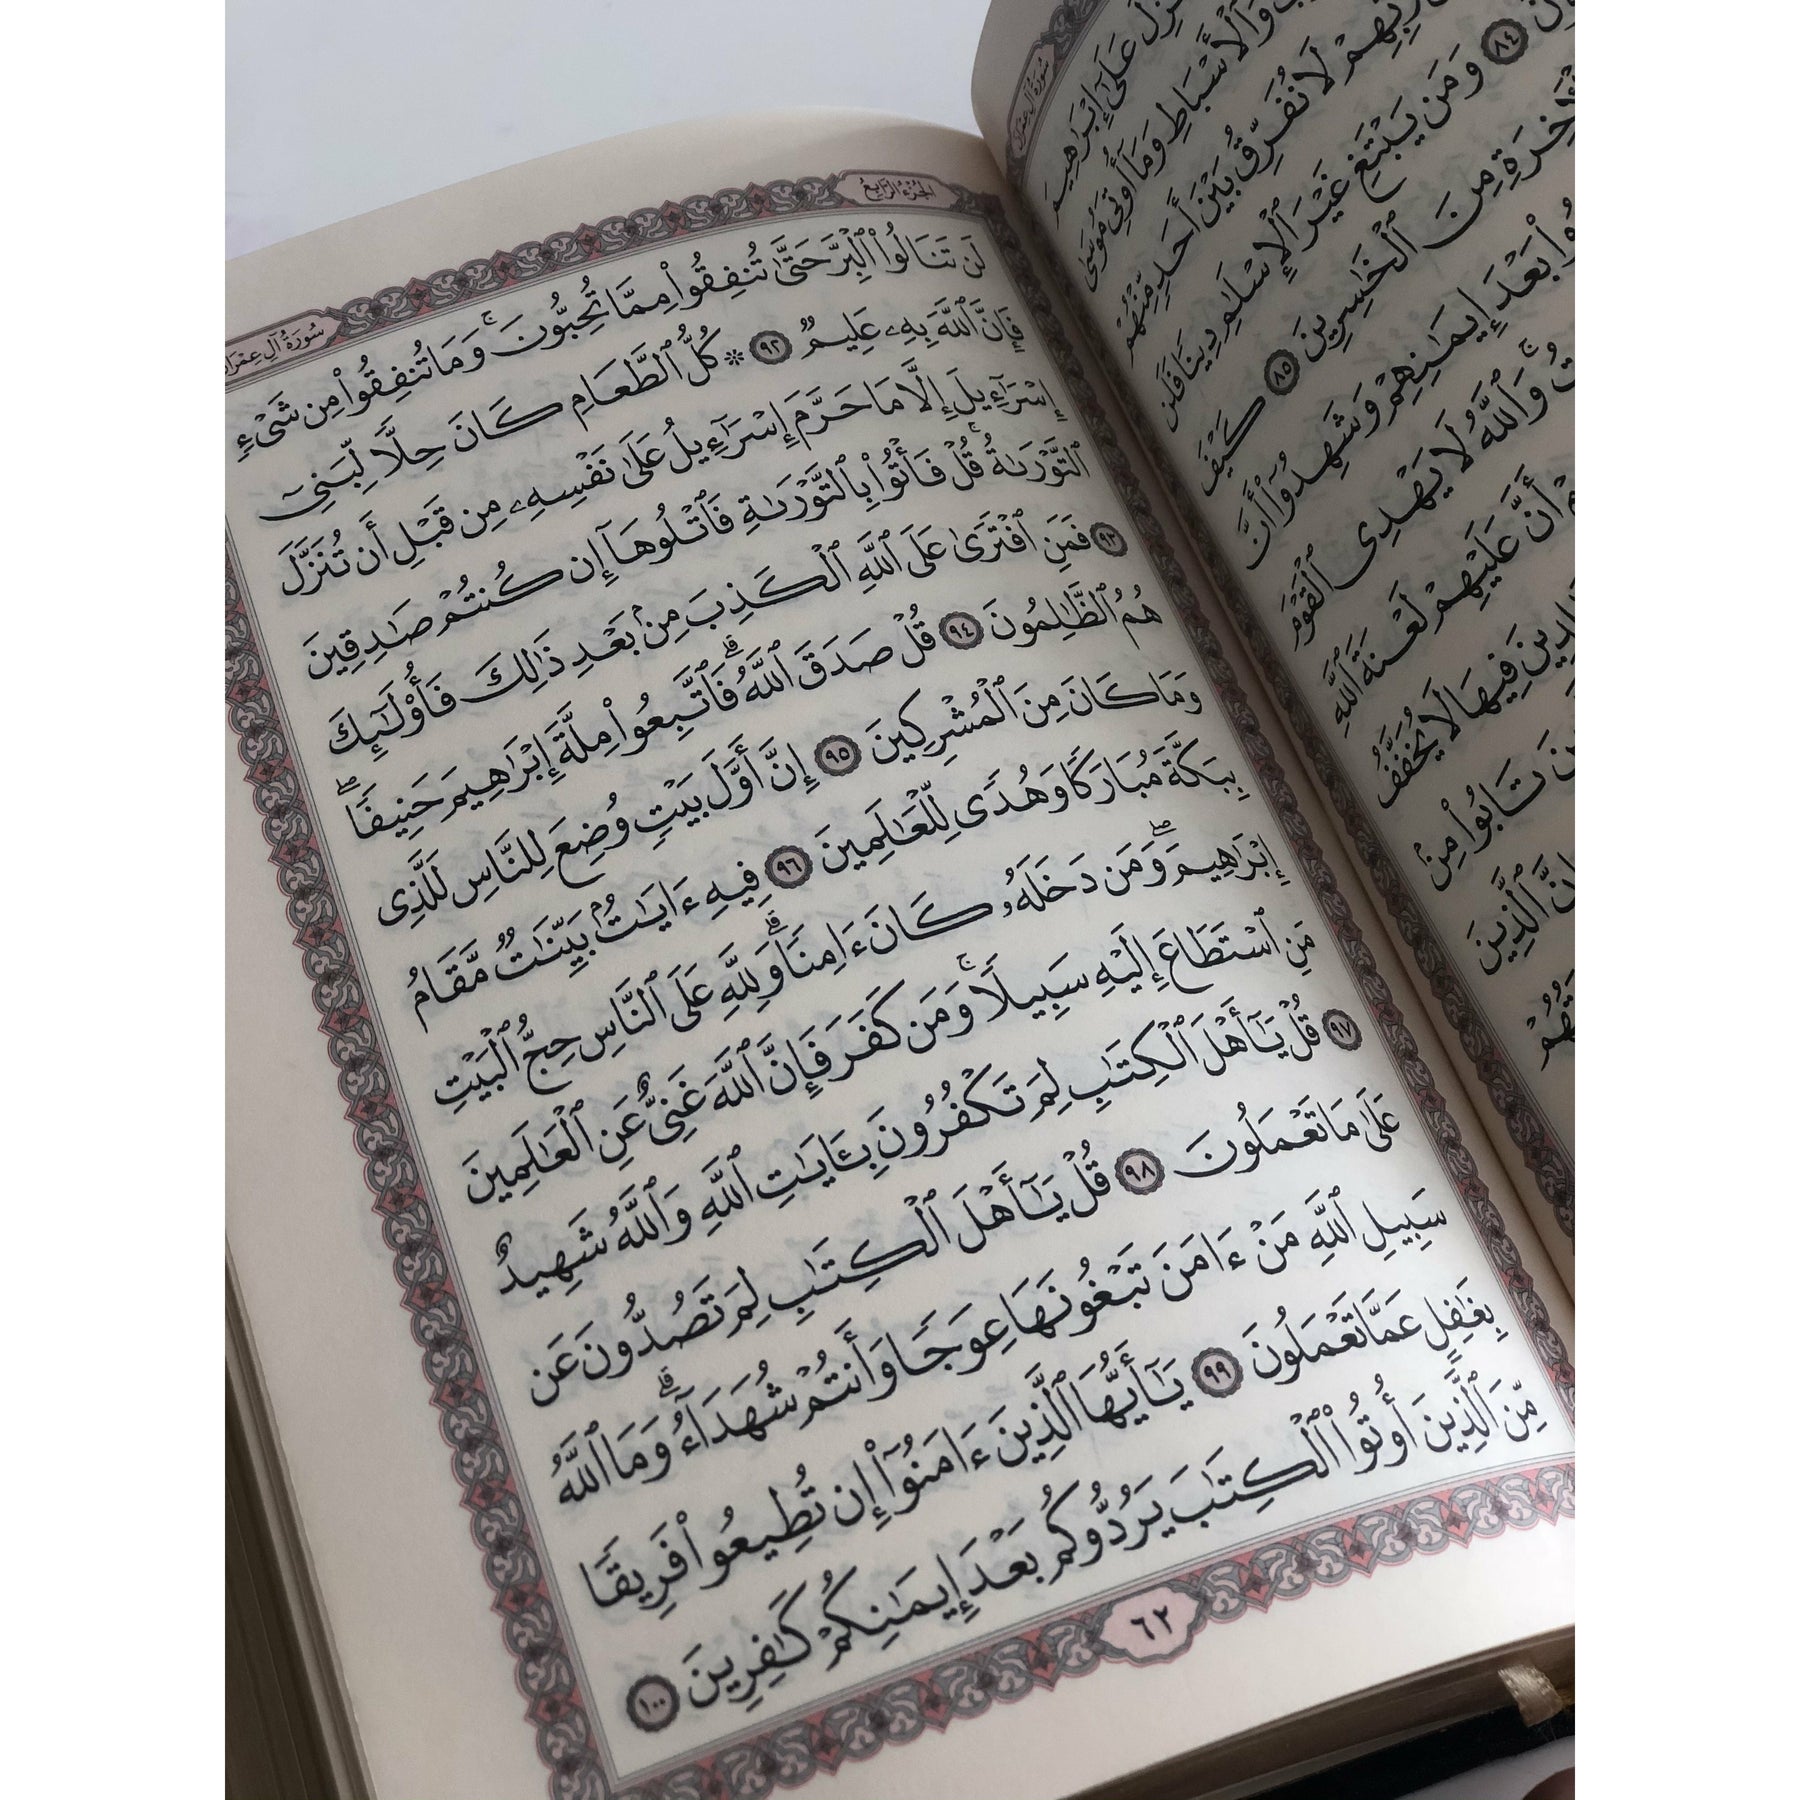 سُورَةُ آلِ عِمْرَانَ
عَلَىٰٓ إِبْرَٰهِيمَ
وَٱلْأَسْبَاطِ وَمَآ أُوتِىَ مُوسَىٰ
رَّبِّهِمْ لَا نُفَرِّقُ بَيْنَ أَحَدٍ مِّنْهُمْ
٨٤ وَمَن يَبْتَغِ غَيْرَ ٱلْإِسْلَٰمِ دِينًا فَلَن
مِنَ ٱلْخَٰسِرِينَ ٨٥ كَيْفَ
بَعْدَ إِيمَٰنِهِمْ وَشَهِدُوٓا۟ أَنَّ
وَٱللَّهُ لَا يَهْدِى ٱلْقَوْمَ
أَنَّ عَلَيْهِمْ لَعْنَةَ ٱللَّهِ
فِيهَا لَا يُخَفَّفُ
تَابُوا۟ مِنۢ
ٱلَّذِينَ
الجُزْءُ الرَّابِعُ
سُورَةُ آلِ عِمْرَانَ
لَن تَنَالُوا۟ ٱلْبِرَّ حَتَّىٰ تُنفِقُوا۟ مِمَّا تُحِبُّونَ ۚ وَمَا تُنفِقُوا۟ مِن شَىْءٍ
فَإِنَّ ٱللَّهَ بِهِۦ عَلِيمٌ ٩٢ * كُلُّ ٱلطَّعَامِ كَانَ حِلًّا لِّبَنِىٓ
إِسْرَٰٓءِيلَ إِلَّا مَا حَرَّمَ إِسْرَٰٓءِيلُ عَلَىٰ نَفْسِهِۦ مِن قَبْلِ أَن تُنَزَّلَ
ٱلتَّوْرَىٰةُ ۗ قُلْ فَأْتُوا۟ بِٱلتَّوْرَىٰةِ فَٱتْلُوهَآ إِن كُنتُمْ صَٰدِقِينَ
٩٣ فَمَنِ ٱفْتَرَىٰ عَلَى ٱللَّهِ ٱلْكَذِبَ مِنۢ بَعْدِ ذَٰلِكَ فَأُو۟لَٰٓئِكَ
هُمُ ٱلظَّٰلِمُونَ ٩٤ قُلْ صَدَقَ ٱللَّهُ ۗ فَٱتَّبِعُوا۟ مِلَّةَ إِبْرَٰهِيمَ حَنِيفًا ۖ
وَمَا كَانَ مِنَ ٱلْمُشْرِكِينَ ٩٥ إِنَّ أَوَّلَ بَيْتٍ وُضِعَ لِلنَّاسِ لَلَّذِى
بِبَكَّةَ مُبَارَكًا وَهُدًى لِّلْعَٰلَمِينَ ٩٦ فِيهِ ءَايَٰتٌۢ بَيِّنَٰتٌ مَّقَامُ
إِبْرَٰهِيمَ ۖ وَمَن دَخَلَهُۥ كَانَ ءَامِنًا ۗ وَلِلَّهِ عَلَى ٱلنَّاسِ حِجُّ ٱلْبَيْتِ
مَنِ ٱسْتَطَاعَ إِلَيْهِ سَبِيلًا ۚ وَمَن كَفَرَ فَإِنَّ ٱللَّهَ غَنِىٌّ عَنِ ٱلْعَٰلَمِينَ
٩٧ قُلْ يَٰٓأَهْلَ ٱلْكِتَٰبِ لِمَ تَكْفُرُونَ بِـَٔايَٰتِ ٱللَّهِ وَٱللَّهُ شَهِيدٌ
عَلَىٰ مَا تَعْمَلُونَ ٩٨ قُلْ يَٰٓأَهْلَ ٱلْكِتَٰبِ لِمَ تَصُدُّونَ عَن
سَبِيلِ ٱللَّهِ مَنْ ءَامَنَ تَبْغُونَهَا عِوَجًا وَأَنتُمْ شُهَدَآءُ ۗ وَمَا ٱللَّهُ
بِغَٰفِلٍ عَمَّا تَعْمَلُونَ ٩٩ يَٰٓأَيُّهَا ٱلَّذِينَ ءَامَنُوٓا۟ إِن تُطِيعُوا۟ فَرِيقًا
مِّنَ ٱلَّذِينَ أُوتُوا۟ ٱلْكِتَٰبَ يَرُدُّوكُم بَعْدَ إِيمَٰنِكُمْ كَٰفِرِينَ ١٠٠
٦٢